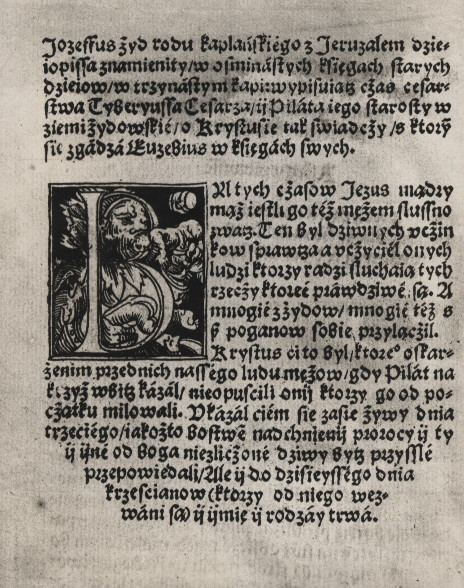 Jozeffus żyd rodu kapłańskiégo z Jeruzalem dzie-
iopissa znamienity/w ośminástych księgach starych
dzieiow/w trzynástym kapi:wypisuiątz cżas cesar-
stwa Tyberyussa Cesarza/ij Piláta iego stárosty w
ziemi żydowskié/o Krystusie tak świadcży/s ktorÿ
sie zgádzá Euzebius w księgách swych.
BA tych cżasow Jezus mądry
mąż iestli go też mężem slussno
zwatz. Ten był dziwnych vcżin
kow sprawtza a vcżyciél onych
ludzi ktorzy radzi słuchaią tych
rzecży ktoreć prawdziwé są. A
mnogié z żydow/ mnogié téż s
ß poganow sobie przyłącżil.
Krystus ci to był/ktoreº oskar-
żenim przednich nasségo ludu mężow/gdy Piłát na
krzyż wbitz kázáł/ nieopuscili onij ktorzy go od po-
cżątku miłowali. Vkázał ciém sie zasie żywy dnia
trzeciégo/iákożto bostwé nadchnienij prorocy ij ty
ij ijné od Boga niezlicżoné dziwy bytz przyssłé
przepowiedali/Ale ij do dzisieysségo dnia
krzescianow (ktorzy od niego wez-
wáni są) ij ijmię ij rodzáy trwá.